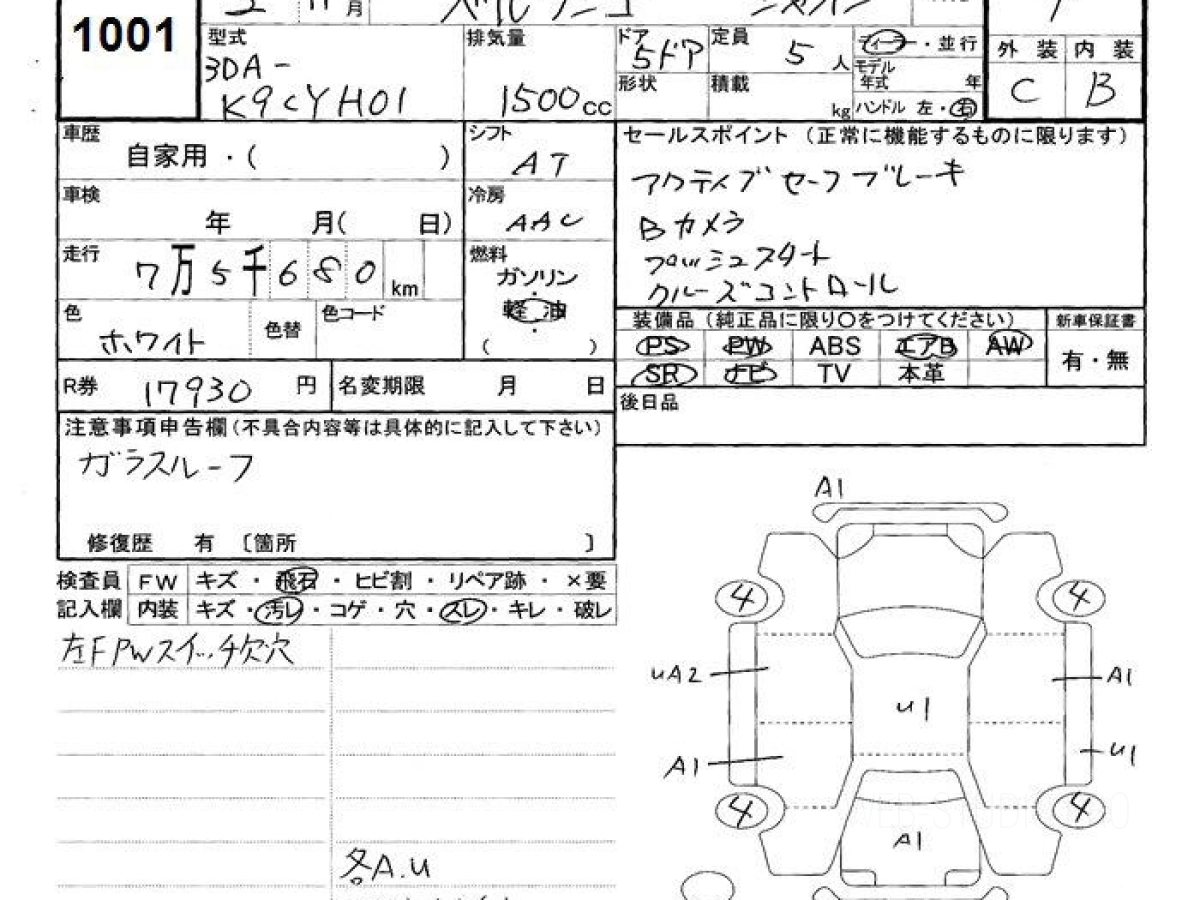 1001
月
型式
3DA-
K9CYH01
排気量
1500 cc
ドア
5ドア
形状
定員
5 人
積載
kg
ディーラー・並行
モデル
年式 年
ハンドル 左・右
外装 内装
C B
車歴
自家用・( )
シフト
AT
車検
年 月( 日)
冷房
AAC
走行
7万5千680 km
燃料
ガソリン
・
軽油
・
( )
色
ホワイト
色替
色コード
R券 17930 円
名変期限 月 日
セールスポイント (正常に機能するものに限ります)
アクティブセーフブレーキ
Bカメラ
プッシュスタート
クルーズコントロール
装備品(純正品に限り○をつけてください) 新車保証書
PS PW ABS エアB AW
SR ナビ TV 本革
有・無
後日品
注意事項申告欄(不具合内容等は具体的に記入して下さい)
ガラスルーフ
修復歴 有 〔箇所 〕
検査員 FW キズ・飛石・ヒビ割・リペア跡・×要
記入欄 内装 キズ・汚レ・コゲ・穴・スレ・キレ・破レ
左FPWスイッチ欠穴
各A.U
A1
4 4
UA2 A1
U1
A1 U1
4 4
A1